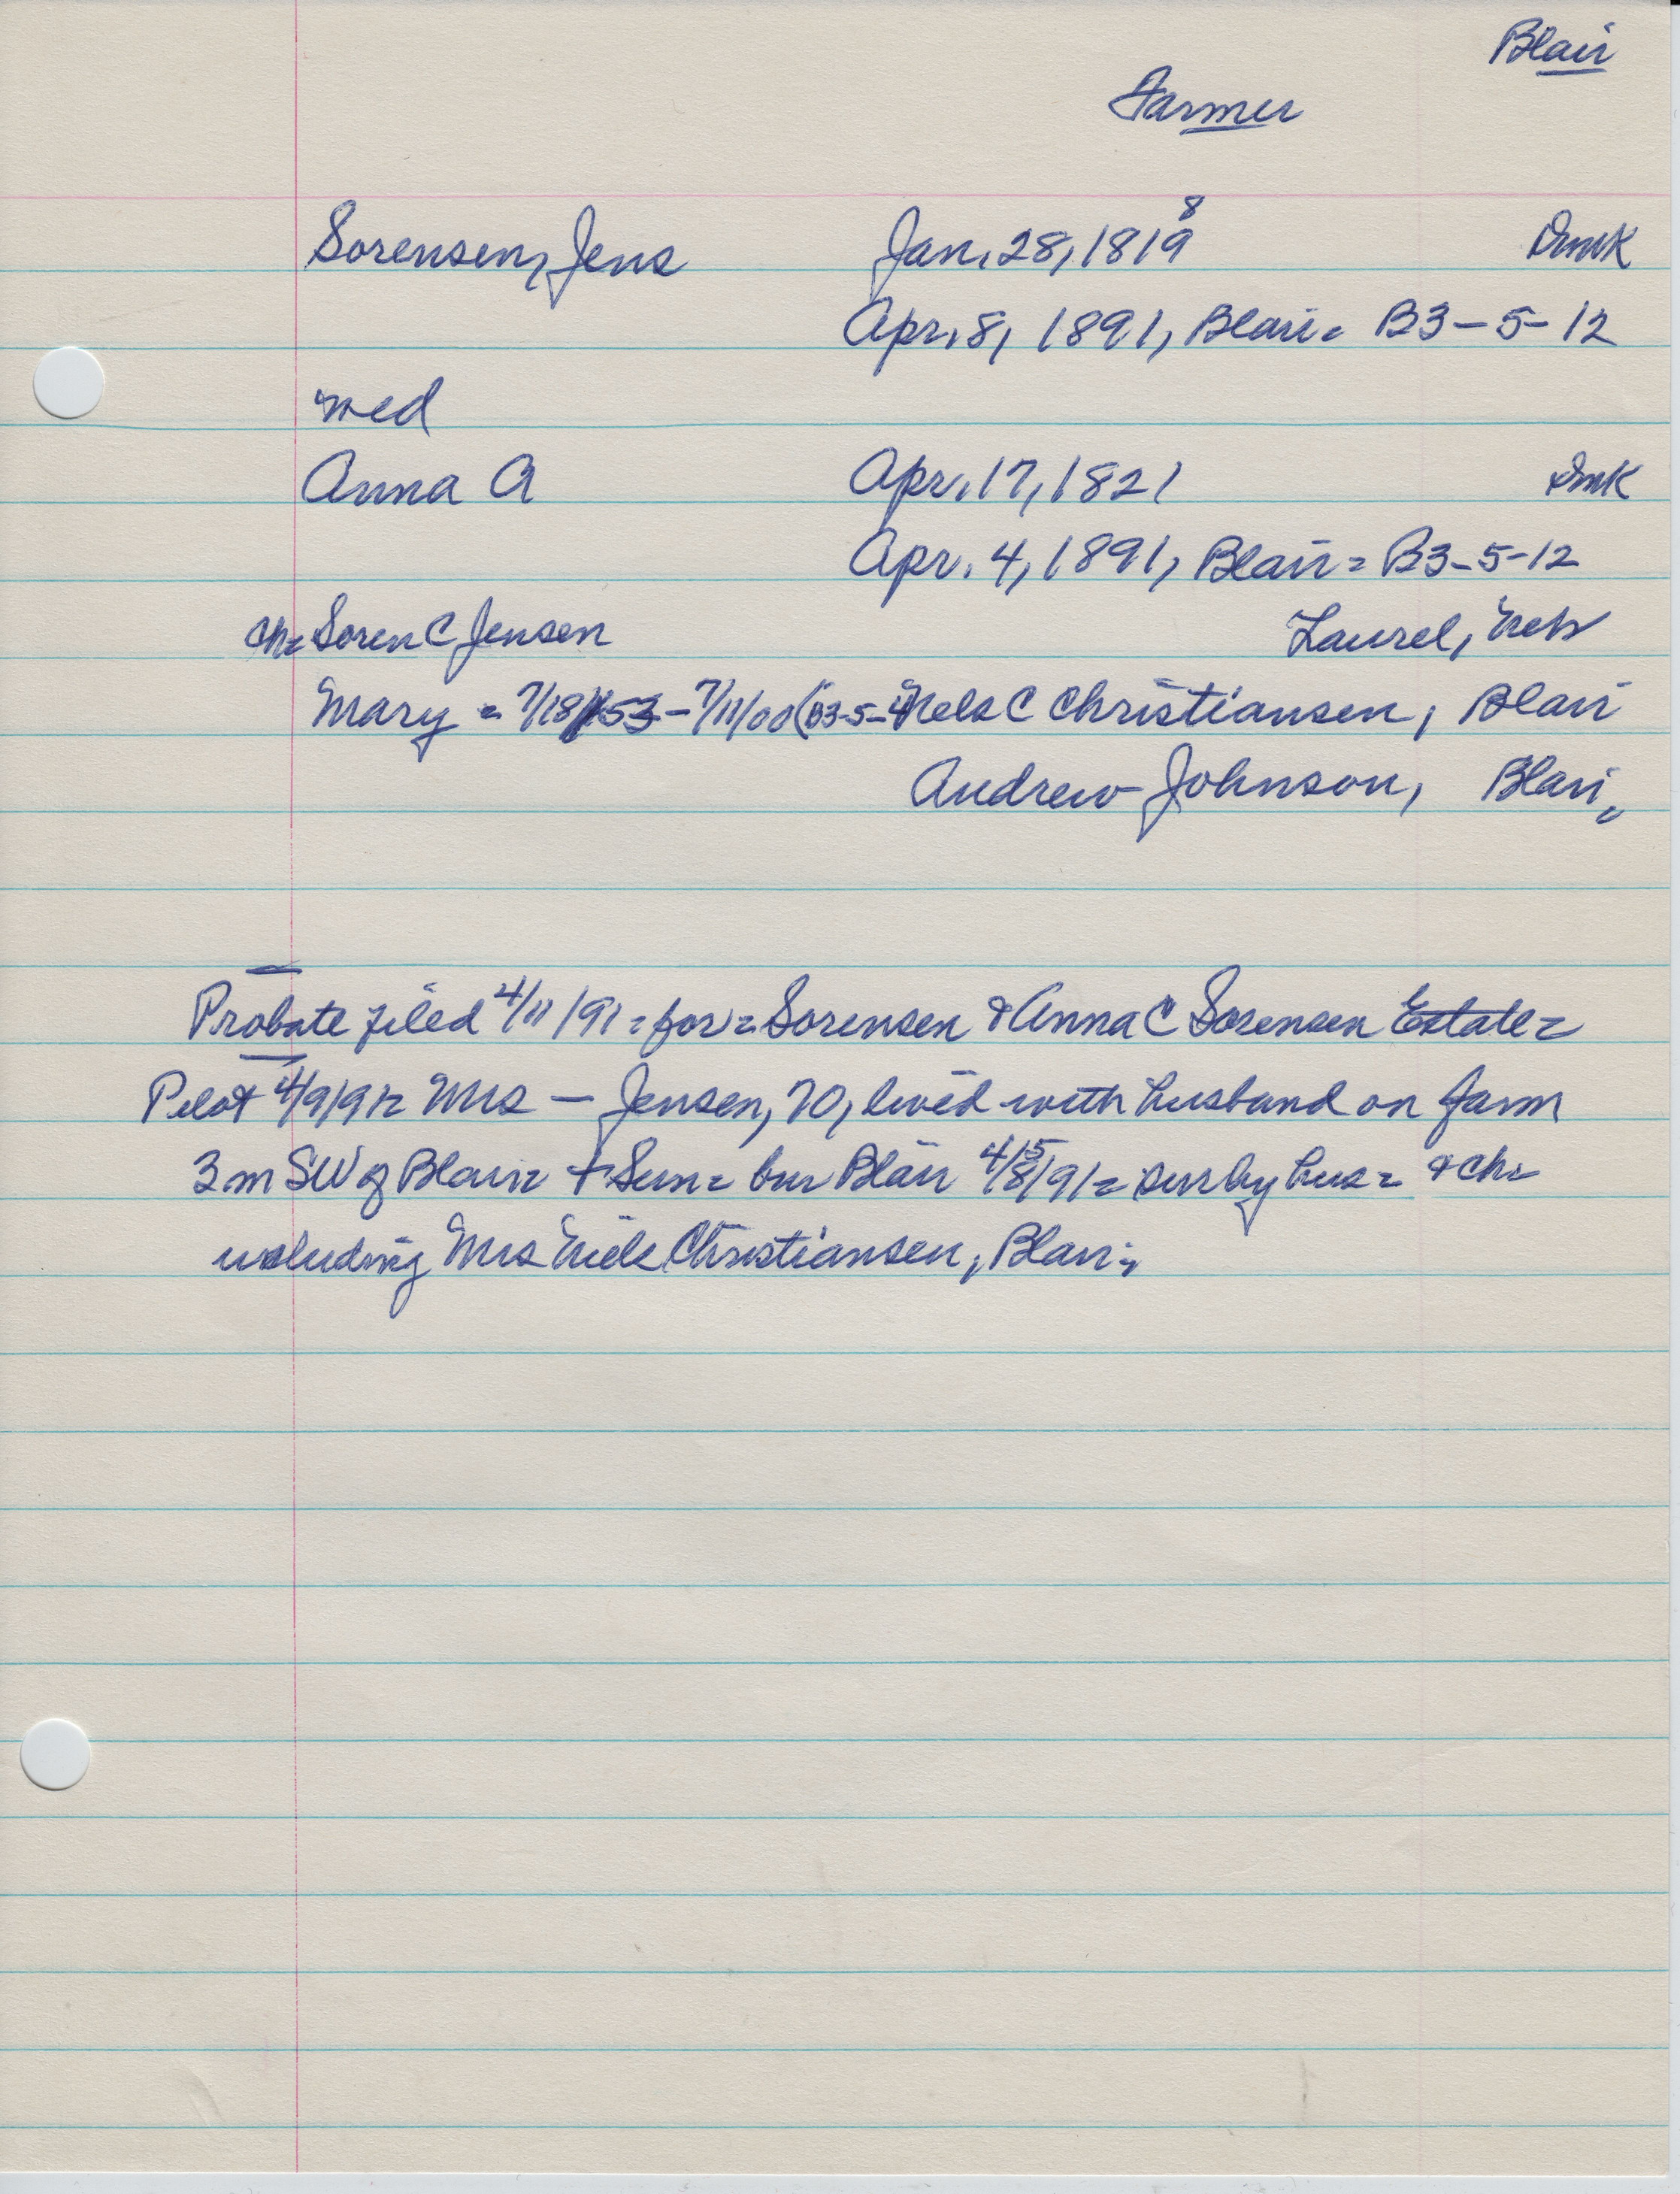 Blair
Farmer
Sorensen, Jens Jan. 28, 1819 8 Dmk
Apr. 8, 1891, Blair = B3-5-12
med
Anna A Apr. 17, 1821 Dmk
Apr. 4, 1891, Blair = B3-5-12
ch= Soren C Jensen Laurel, Neb
Mary = 7/18/53 - 7/11/00 (B3-5-4 Nels C Christiansen, Blair
Andrew Johnson, Blair,
Probate filed 4/11/91 = for = Sorensen & Anna C Sorensen Estate =
Pilot 4/9/91 = Mrs — Jensen, 70, lived with husband on farm
3 m SW of Blair = + Sun = bur Blair 4/8/91 = sur by hus = & ch =
including Mrs Niels Christiansen, Blair;